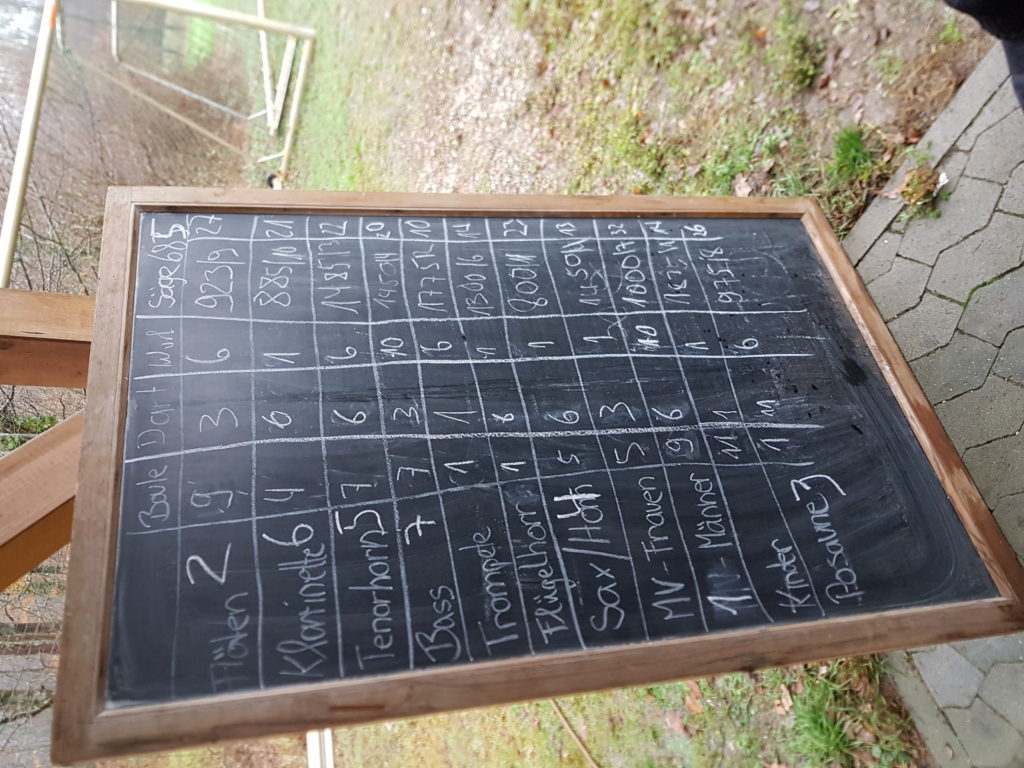 Boule Dart Wurf Säge 685
Flöten 2 9 3 6 923/9 27
Klarinette 6 4 6 1 885/10 21
Tenorhorn 5 7 6 6 1485/3 22
Bass 7 7 3 10 1450/ 20
Trompete 1 1 6 1775/ 10
Flügelhorn 1 6 1 1300/6 14
Sax/Horn 4 5 6 1 800/11 23
MV-Frauen 5 3 1 1459/ 13
MV-Männer 9 6 10 1000/7 32
Kinder 11 1 1 14
Posaune 3 11 11 6 975/8